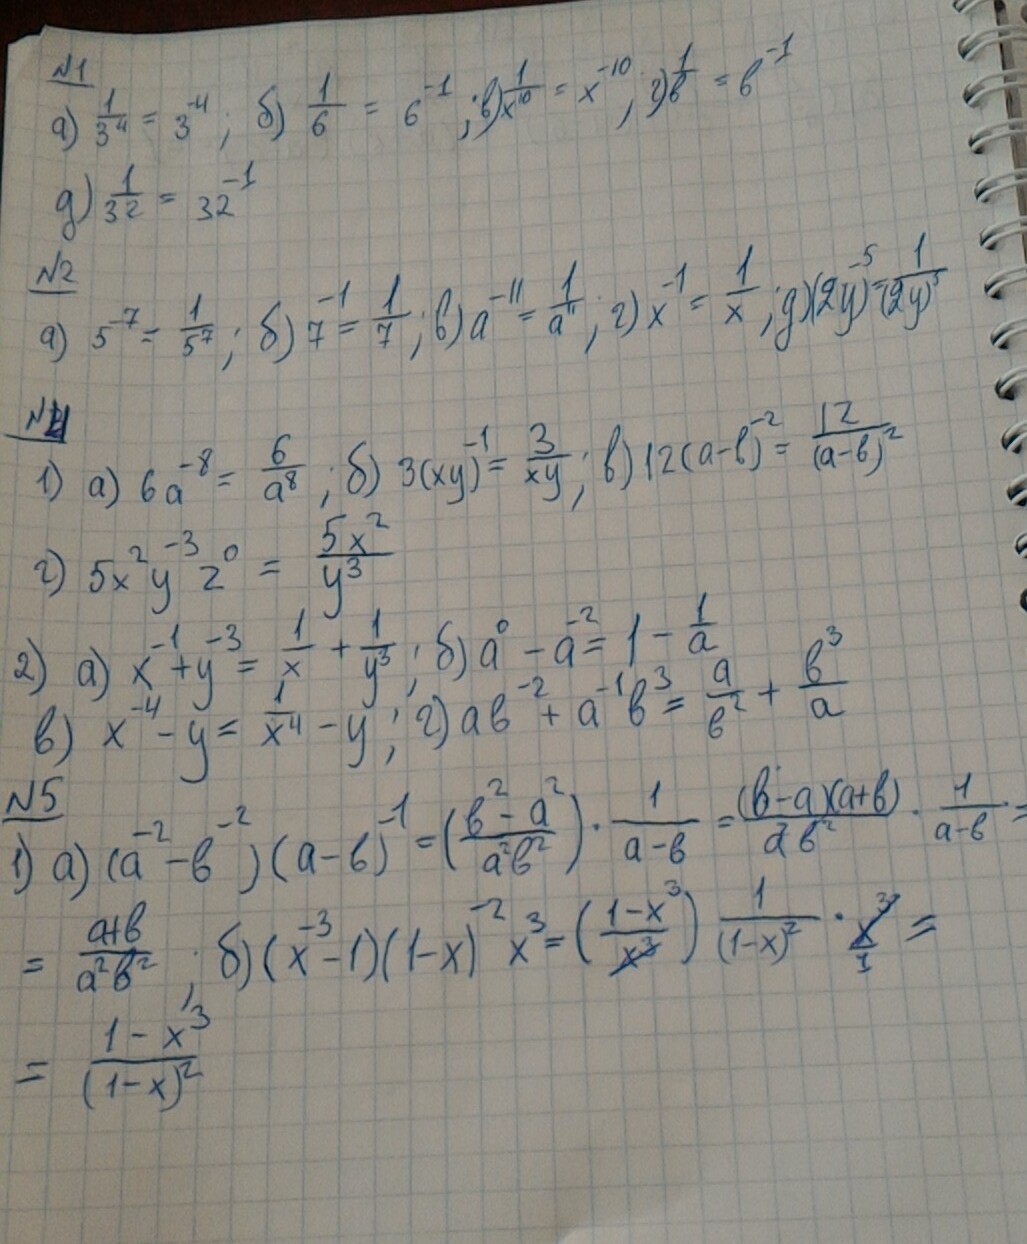 №1
а) 1/3⁴ = 3⁻⁴ ; б) 1/6 = 6⁻¹ ; в) 1/x¹⁰ = x⁻¹⁰ ; г) 1/в = в⁻¹
д) 1/32 = 32⁻¹
№2
а) 5⁻⁷ = 1/5⁷ ; б) 7⁻¹ = 1/7 ; в) a⁻¹¹ = 1/a¹¹ ; г) x⁻¹ = 1/x ; д) (2y)⁻⁵ = 1/(2y)⁵
№4
1) а) 6a⁻⁸ = 6/a⁸ ; б) 3(xy)⁻¹ = 3/xy ; в) 12(a-в)⁻² = 12/(a-в)²
г) 5x²y⁻³z⁰ = 5x²/y³
2) а) x⁻¹ + y⁻³ = 1/x + 1/y³ ; б) a⁰ - a⁻² = 1 - 1/a
в) x⁻⁴ - y = 1/x⁴ - y ; г) aв⁻² + a⁻¹в³ = a/в² + в³/a
№5
1) а) (a⁻² - в⁻²)(a-в)⁻¹ = (в² - a²/a²в²) · 1/a-в = (в-a)(a+в)/a²в² · 1/a-в =
= a+в/a²в² ; б) (x⁻³-1)(1-x)⁻² x³ = (1-x³/x³) 1/(1-x)² · x³/1 =
= 1-x³/(1-x)²